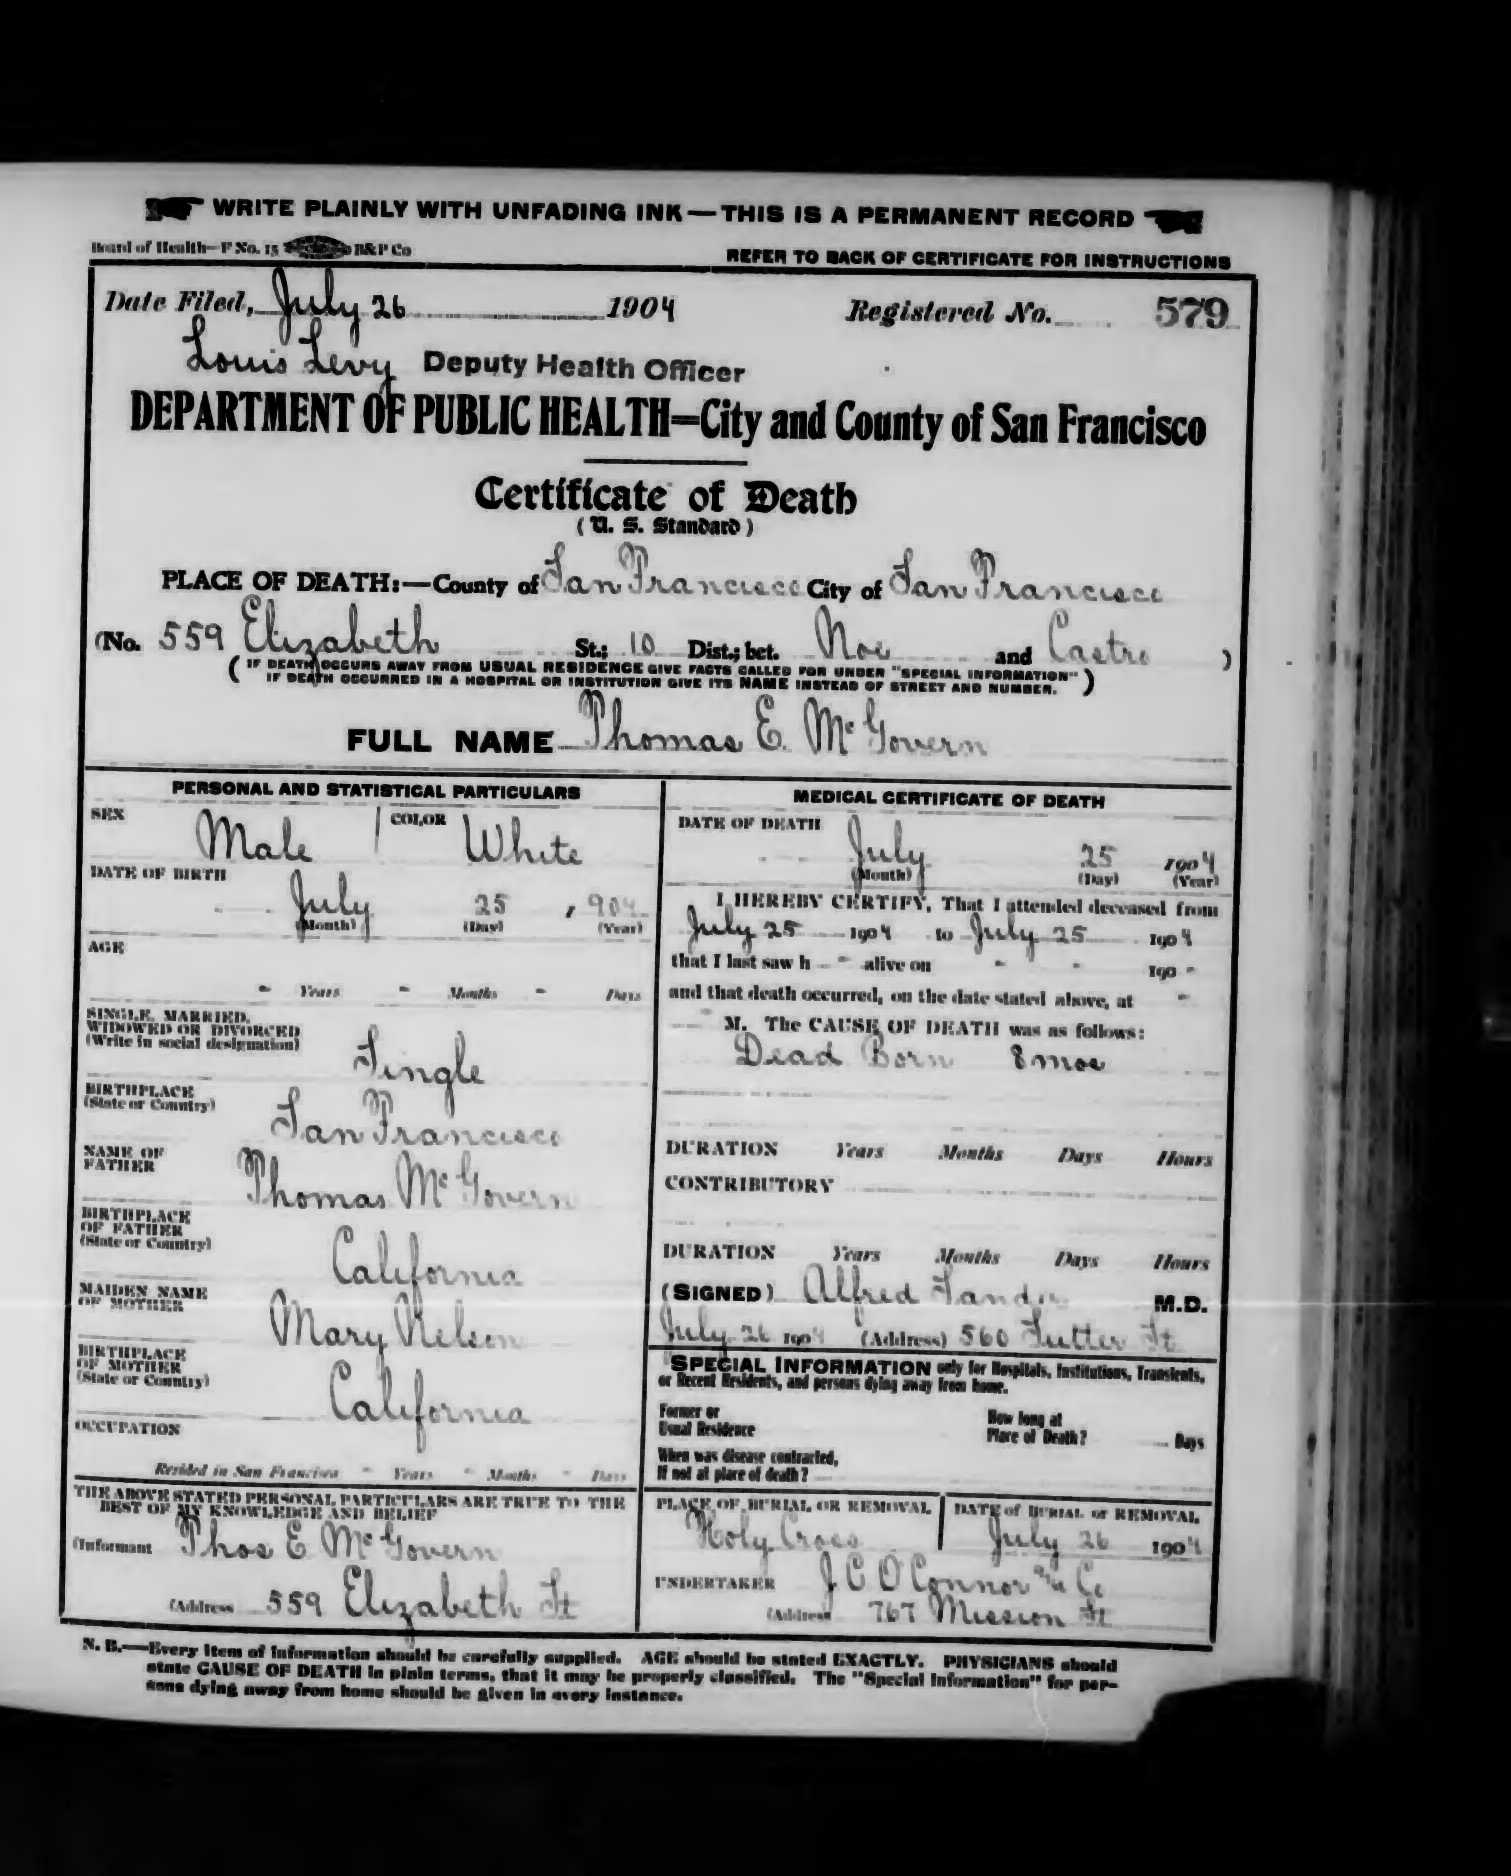 WRITE PLAINLY WITH UNFADING INK—THIS IS A PERMANENT RECORD
Board of Health—F No. 15 B&P Co
REFER TO BACK OF CERTIFICATE FOR INSTRUCTIONS
Date Filed, July 26 1904 Registered No. 579
Louis Levy Deputy Health Officer
DEPARTMENT OF PUBLIC HEALTH=City and County of San Francisco
Certificate of Death
(U. S. Standard)
PLACE OF DEATH:—County of San Francisco City of San Francisco
(No. 559 Elizabeth St.; 10 Dist.; bet. Noe and Castro )
(IF DEATH OCCURS AWAY FROM USUAL RESIDENCE GIVE FACTS CALLED FOR UNDER "SPECIAL INFORMATION"
IF DEATH OCCURRED IN A HOSPITAL OR INSTITUTION GIVE ITS NAME INSTEAD OF STREET AND NUMBER.)
FULL NAME Thomas E. McGovern
PERSONAL AND STATISTICAL PARTICULARS
SEX Male COLOR White
DATE OF BIRTH
July 25, 904
(Month) (Day) (Year)
AGE
" Years " Months " Days
SINGLE, MARRIED,
WIDOWED OR DIVORCED
(Write in social designation)
Single
BIRTHPLACE
(State or Country)
San Francisco
NAME OF
FATHER
Thomas McGovern
BIRTHPLACE
OF FATHER
(State or Country)
California
MAIDEN NAME
OF MOTHER
Mary Nelson
BIRTHPLACE
OF MOTHER
(State or Country)
California
OCCUPATION
Resided in San Francisco " Years " Months " Days
THE ABOVE STATED PERSONAL PARTICULARS ARE TRUE TO THE
BEST OF MY KNOWLEDGE AND BELIEF
(Informant Thos E McGovern
(Address 559 Elizabeth St
MEDICAL CERTIFICATE OF DEATH
DATE OF DEATH
July 25 1904
(Month) (Day) (Year)
I HEREBY CERTIFY, That I attended deceased from
July 25 1904 to July 25 1904
that I last saw h " alive on " " 190 "
and that death occurred, on the date stated above, at "
M. The CAUSE OF DEATH was as follows:
Dead Born 8 mos
DURATION Years Months Days Hours
CONTRIBUTORY
DURATION Years Months Days Hours
(SIGNED) Alfred M.D.
July 26 1904 (Address) 560 Sutter St
SPECIAL INFORMATION only for Hospitals, Institutions, Transients,
or Recent Residents, and persons dying away from home.
Former or
Usual Residence
How long at
Place of Death? Days
When was disease contracted,
If not at place of death?
PLACE OF BURIAL OR REMOVAL
Holy Cross
DATE of BURIAL or REMOVAL
July 26 1904
UNDERTAKER J C O'Connor & Co
(Address 767 Mission St
N. B.—Every item of information should be carefully supplied. AGE should be stated EXACTLY. PHYSICIANS should
state CAUSE OF DEATH in plain terms, that it may be properly classified. The "Special Information" for per-
sons dying away from home should be given in every instance.